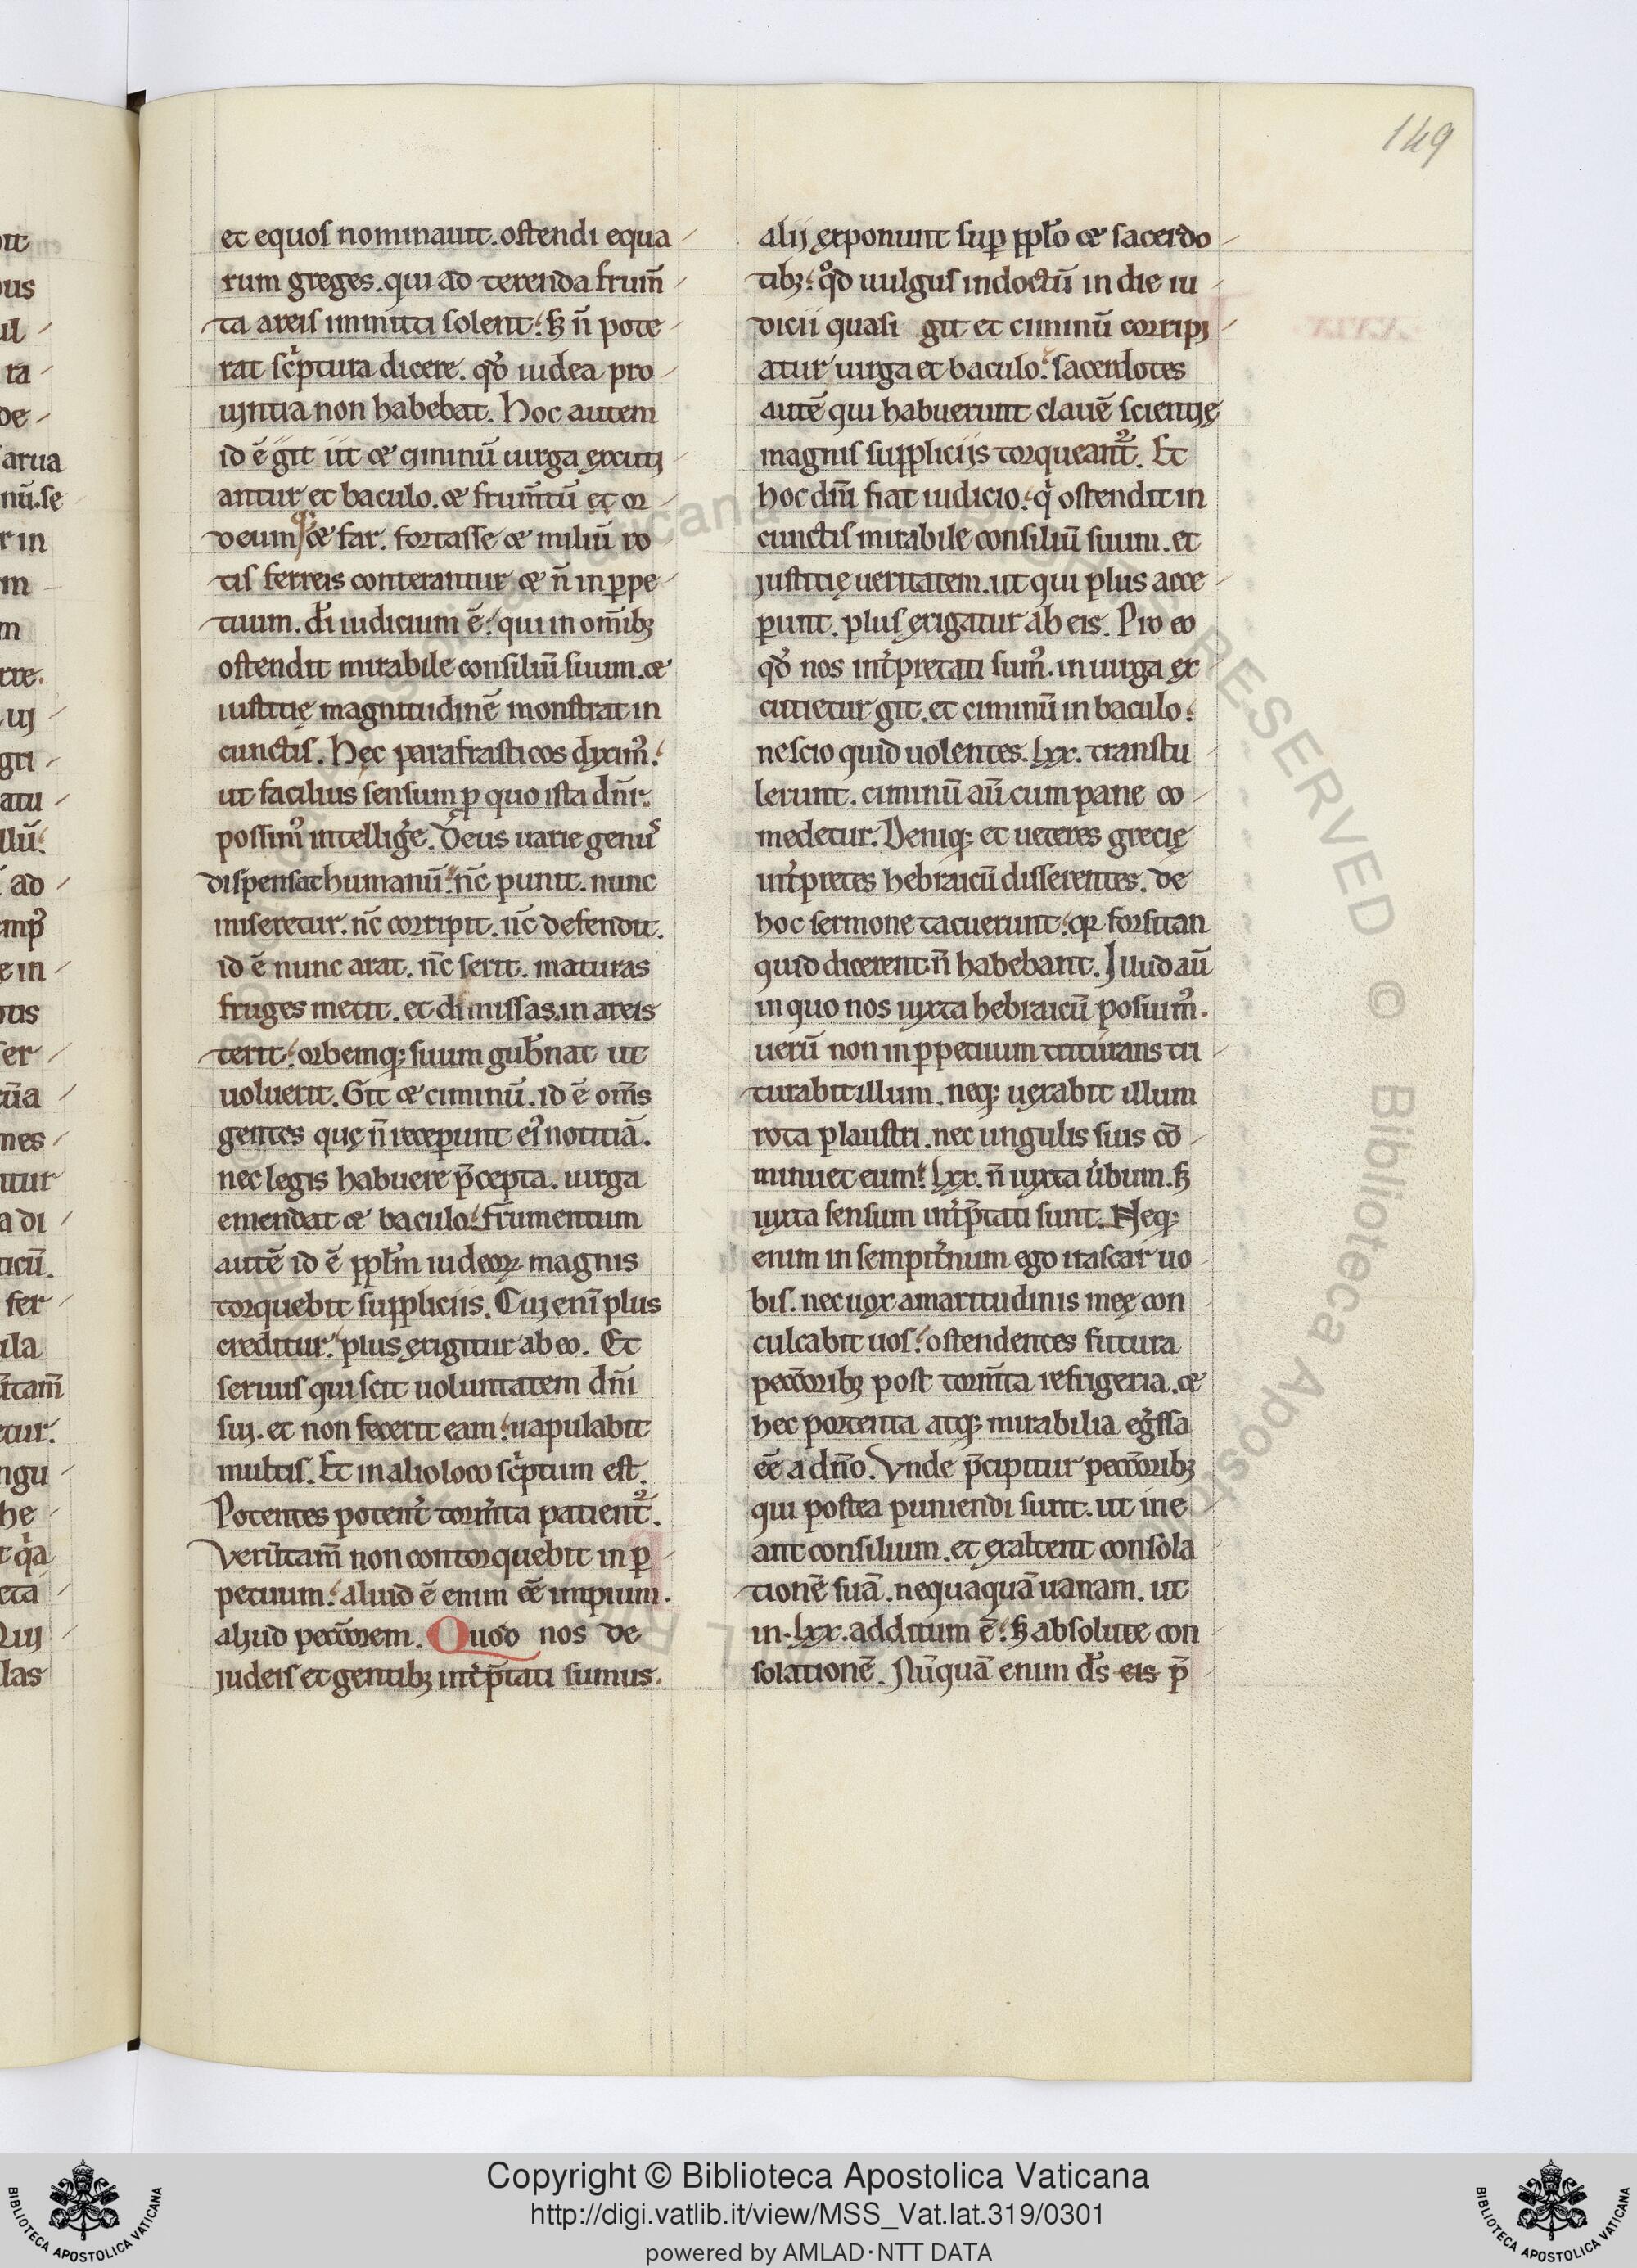 149
et equos nominauit. ostendi equa
rum greges. qui ad terenda frum̄
ta areis immitti solent. sꝫ n̄ pote
rat sc̓ptura dicere. qđ iudea pro
uintia non habebat. Hoc autem
id ē git ut et ciminū uirga excuti
antur et baculo. et frum̄tū et or
deum et far. fortasse et miliū ro
tis ferreis conterantur et n̄ in ꝑpe
tuum. di iudicium ē. qui in om̄ibꝫ
ostendit mirabile consiliū suum. et
iustitię magnitudinē monstrat in
cunctis. Hęc parafrasticos dixim᷒.
ut facilius sensum ꝑ quo ista dn̄r.
possim᷒ intellig̓e. Deus uarie genus
dispensat humanū. nc̄ punit. nunc
miseretur. nc̄ corripit. nc̄ defendit.
id ē nunc arat. nc̄ serit. maturas
fruges metit. et dimissas in areis
terit. orbemqꝫ suum gub̓nat ut
uoluerit. Git et ciminū. id ē om̄s
gentes quę n̄ receperunt ei᷒ notitiā.
nec legis habuere p̄cepta. uirga
emendat et baculo. frumentum
autē id ē ppl̄m iudeoꝝ magnis
torquebit suppliciis. Cui eni̅ plus
creditur. plus exigitur ab eo. Et
seruus qui scit uoluntatem dn̄i
sui. et non fecerit eam. uapulabit
multis. Et in alio loco sc̓ptum est.
Potentes potent̓ torm̓ta patient᷒.
Verūtam̄ non contorquebit in ꝑ
petuum. aliud ē enim ēē impium.
aliud peccōrem. Quod nos de
judeis et gentibꝫ int̓p̄tati sumus.
alij exponunt suꝑ ppl̄o et sacerdo
tibꝫ. qd̊ uulgus indoctū in die iu
dicii quasi git et ciminū corripi
atur uirga et baculo. sacerdotes
autē qui habuerunt clauē scientię
magnis suppliciis torqueant᷒. Et
hoc dn̄i fiat iudicio. q̓ ostendit in
cunctis mirabile consiliū suum. et
justitię ueritatem. ut qui plus acce
ꝑunt. plus exigatur ab eis. Pro eo
qđ nos int̓pretati sum᷒. in uirga ex
cutietur git. et ciminū in baculo.
nescio quid uolentes. lxx. transtu
lerunt. ciminū aū cum pane co
medetur. Deniqꝫ et ueteres grecię
int̓pretes hebraicū disserentes. de
hoc sermone tacuerunt. qꝛ forsitan
quid dicerent n̄ habebant. Illud aū
in quo nos iuxta hebraicū posuim᷒.
uerū non in ꝑpetuum triturans tri
turabit illum. neqꝫ uexabit illum
rota plaustri. nec ungulis suis cō
minuet eum. lxx. n̄ iuxta u̓bum. sꝫ
iuxta sensum int̓p̄tati sunt. Neqꝫ
enim in sempit̓num ego irascar uo
bis. nec uox amaritudinis meę con
culcabit uos. ostendentes futura
peccōribꝫ post torm̄ta refrigeria. et
hec portenta atqꝫ mirabilia eg̓ssa
ēē a dn̄o. Vnde p̄cipitur peccōribꝫ
qui postea puniendi sunt. ut ine
ant consilium. et exaltent consola
tionē suā. nequaquā uanam. ut
in. lxx. additum ē. sꝫ absolute con
solationē. Nūquā enim ds̄ eis p̄
Copyright © Biblioteca Apostolica Vaticana
http://digi.vatlib.it/view/MSS_Vat.lat.319/0301
powered by AMLAD·NTT DATA
BIBLIOTECA APOSTOLICA VATICANA
BIBLIOTECA APOSTOLICA VATICANA